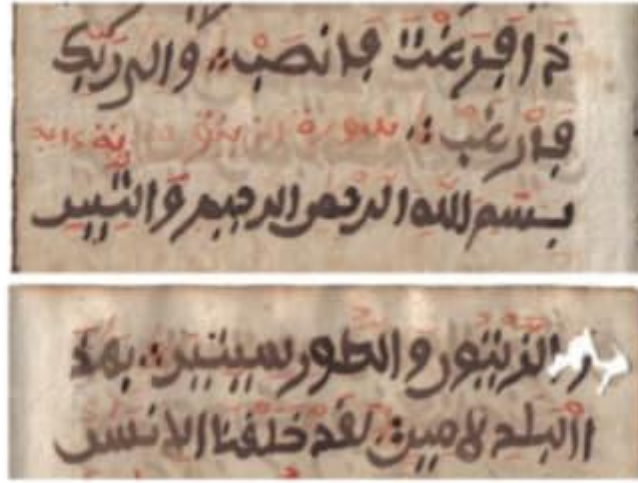 ذا فرغت فانصب والى ربك
فارغب سورة
بسم الله الرحمن الرحيم والتين
الزيتون و الطور سينين بهذ
االبلد لامين لقد خلقنا الانسن